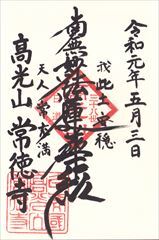 令和元年五月三日
我此土安穏
南無妙法蓮華経
天人常充満
高光山 常徳寺